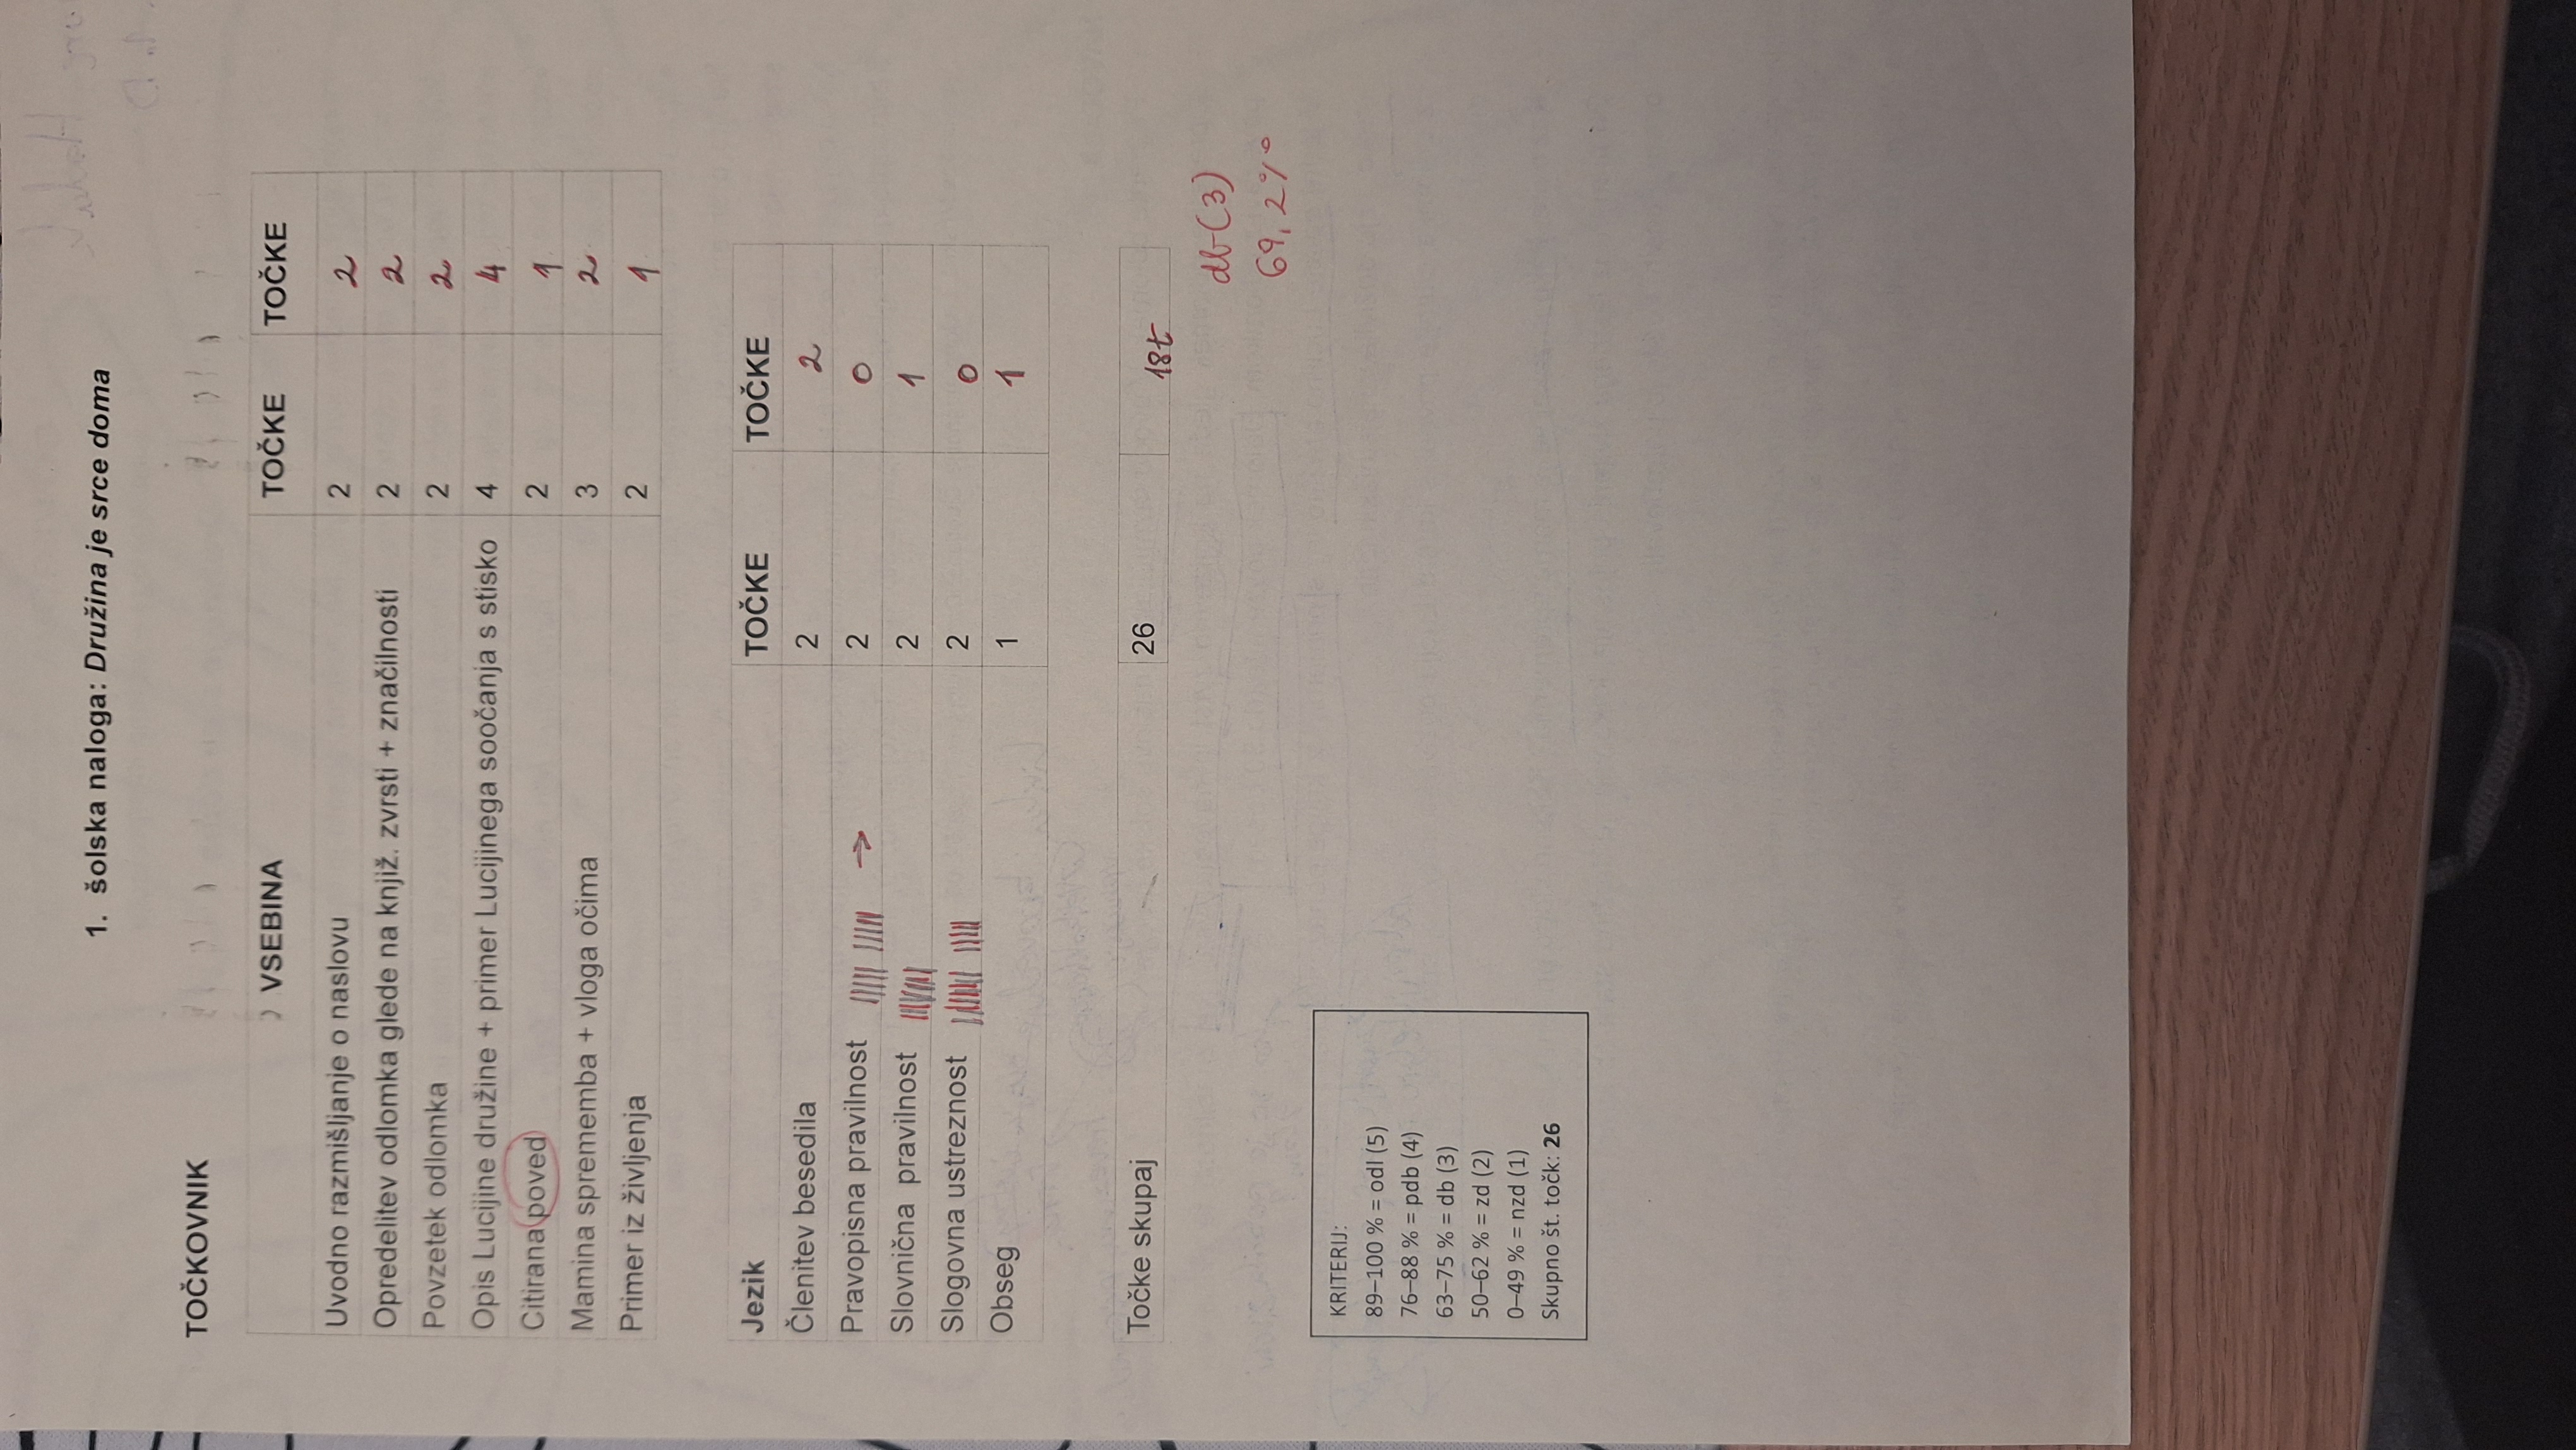 1. šolska naloga: Družina je srce doma
TOČKOVNIK
VSEBINA TOČKE TOČKE
Uvodno razmišljanje o naslovu 2 2
Opredelitev odlomka glede na knjiž. zvrsti + značilnosti 2 2
Povzetek odlomka 2 2
Opis Lucijine družine + primer Lucijinega soočanja s stisko 4 4
Citirana poved 2 1
Mamina sprememba + vloga očima 3 2
Primer iz življenja 2 1
Jezik TOČKE TOČKE
Členitev besedila 2 2
Pravopisna pravilnost → 2 0
Slovnična pravilnost 2 1
Slogovna ustreznost 2 0
Obseg 1 1
Točke skupaj 26 18t
db (3)
69,2%
KRITERIJ:
89–100 % = odl (5)
76–88 % = pdb (4)
63–75 % = db (3)
50–62 % = zd (2)
0–49 % = nzd (1)
Skupno št. točk: 26